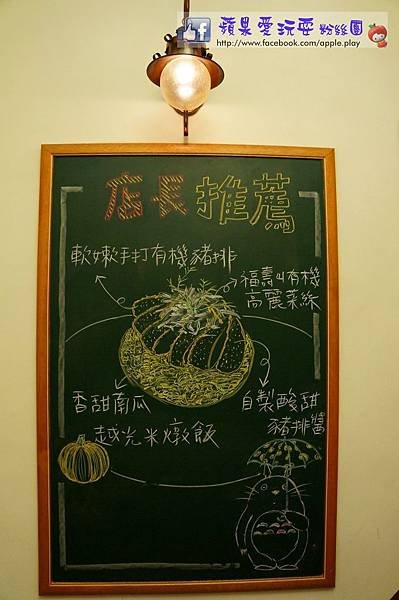 蘋果愛玩耍 粉絲團
http://www.facebook.com/apple.play
店長推薦
軟嫩手打有機豬排
福壽山有機
高麗菜絲
香甜南瓜
越光米燉飯
自製酸甜
豬排醬